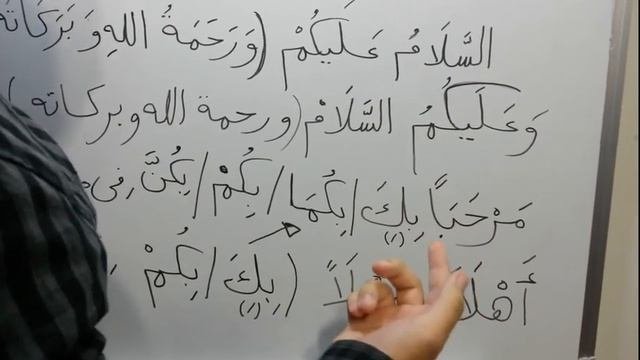 السَّلَامُ عَلَيكُمْ (وَرَحَمَةُ اللهِ وَ بَرَكَاتَه
وَعَلَيكُمُ السَّلَامْ (ورحمة الله و بركاته)
مَرْحَبَاً بِكَِ / بِكُمَا / بِكُمْ / بِكُنَّ فِى
أَهْلَا لَاً (بِكَِ / بِكُمْ